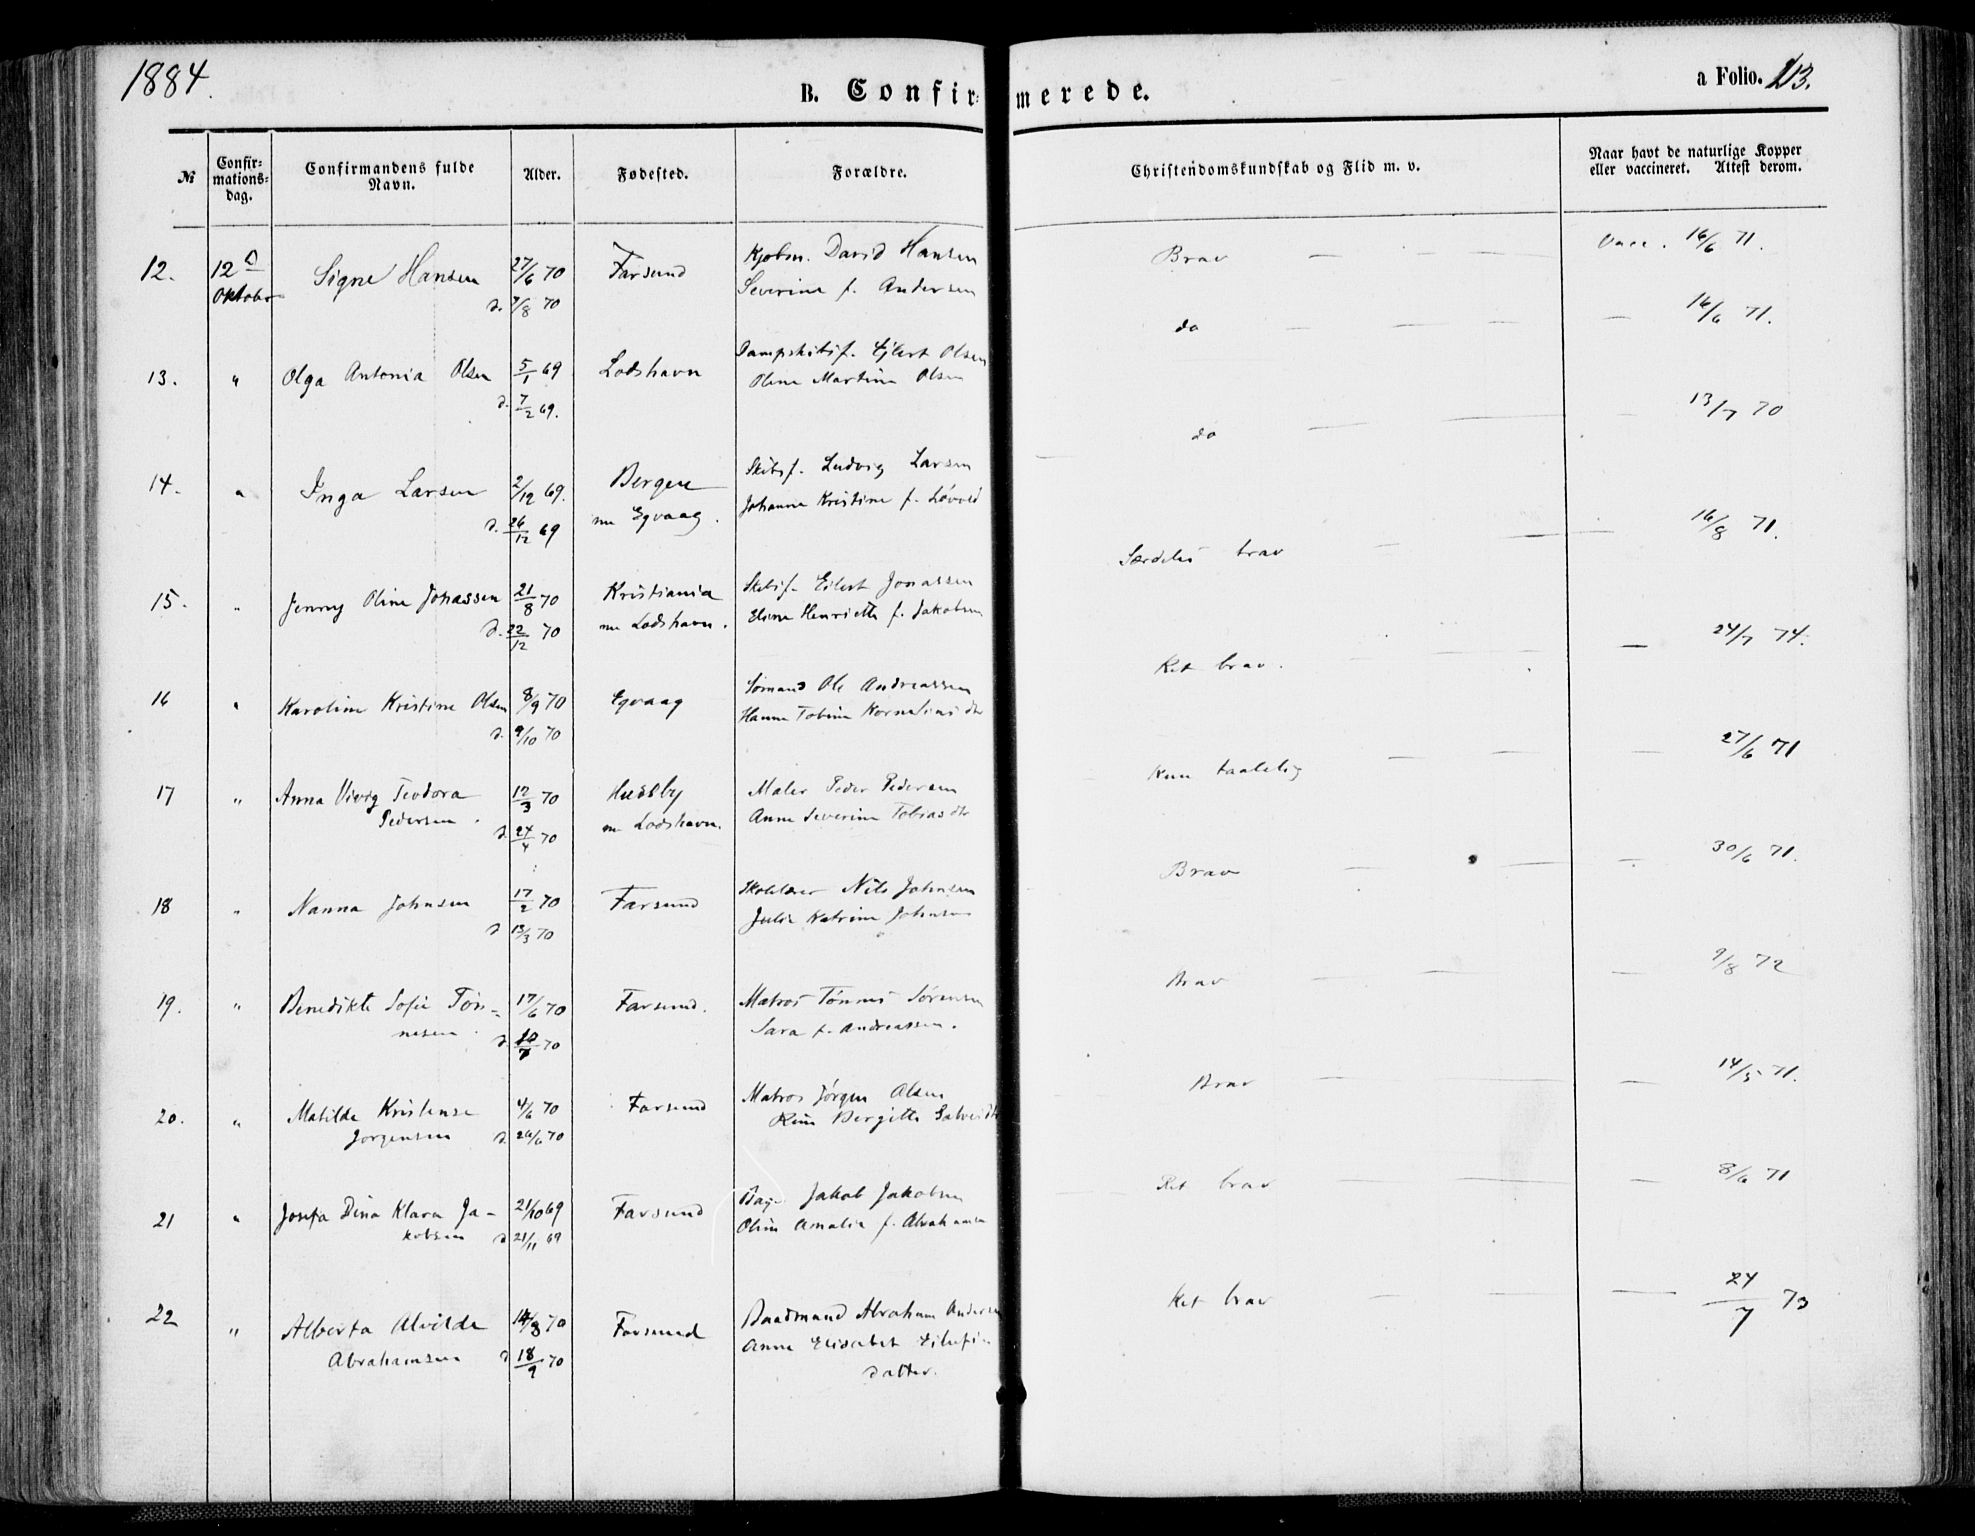 1884.
B. Confirmerede.
a Folio. 113.
№
Confirmationsdag.
Confirmandens fulde Navn.
Alder.
Fødested.
Forældre.
Christendomskundskab og Flid m. v.
Naar havt de naturlige Kopper eller vaccineret. Attest derom.
12. 12 Oktober Signe Hansen 27/6 70 Farsund Kjøbm. David Hansen Brav — — — — Vacc. 16/6 71.
d. 7/8 70 Severine f. Andersen
13. " Olga Antonia Olsen 5/1 69 Lodshavn Dampskibsf. Ejlert Olsen do — — — — 16/6 71.
d. 7/2 69. Oline Martine Olsen
14. " Inga Larsen 2/12 69. Bergen Skibsf. Ludvig Larsen do — — — 13/7 70
d. 26/12 69 nu Egvaag. Johanne Kristine f. Løvold
15. " Jenny Oline Jonassen 21/8 70 Kristiania Skibsf. Eilert Jonassen Særdeles brav — — — 16/8 71.
d. 22/12 70 nu Lodshavn. Eline Henriette f. Jakobsen
16 " Karoline Kristine Olsen 8/9 70 Egvaag Sømand Ole Andreassen Ret brav. — — — 24/7 74.
d. 9/10 70 Hanne Tobine Korneliusdtr
17 " Anna Vivig Teodora 12/3 70 Huseby Maler Peder Pedersen Kun taalelig — — — 27/6 71
Pedersen. d. 24/4 70 nu Lodshavn. Anne Severine Tobiasdtr
18 " Nanna Johnsen 17/2 70 Farsund Skolelærer Nils Johnsen Brav — — — 30/6 71.
d 13/3 70 Julie Katrine Johnsen
19. " Benedikte Sofie Tøn- 17/6 70 Farsund. Matros Tønnes Sørensen Brav — — — 9/8 72
nesen. d. 10/7 70 Sara f. Andreassen.
20. " Matilde Kristense 4/6 70 Farsund Matros Jørgen Olsen Brav — — — 14/5 71.
Jørgensen d. 26/6 70 Bergitte
21 " Josefa Dina Klara Ja- 21/10 69 Farsund Jakob Jakobsen Ret brav — — — 8/6 71
kobsen d 21/11 69 Oline Amalie f. Abrahamsen
22 " Alberta Alvilde 14/8 70 Farsund Baadmand Abraham Andersen Ret brav — — — 24/7 73
Abrahamsen d 18/9 70 Anne Elisabet
datter.